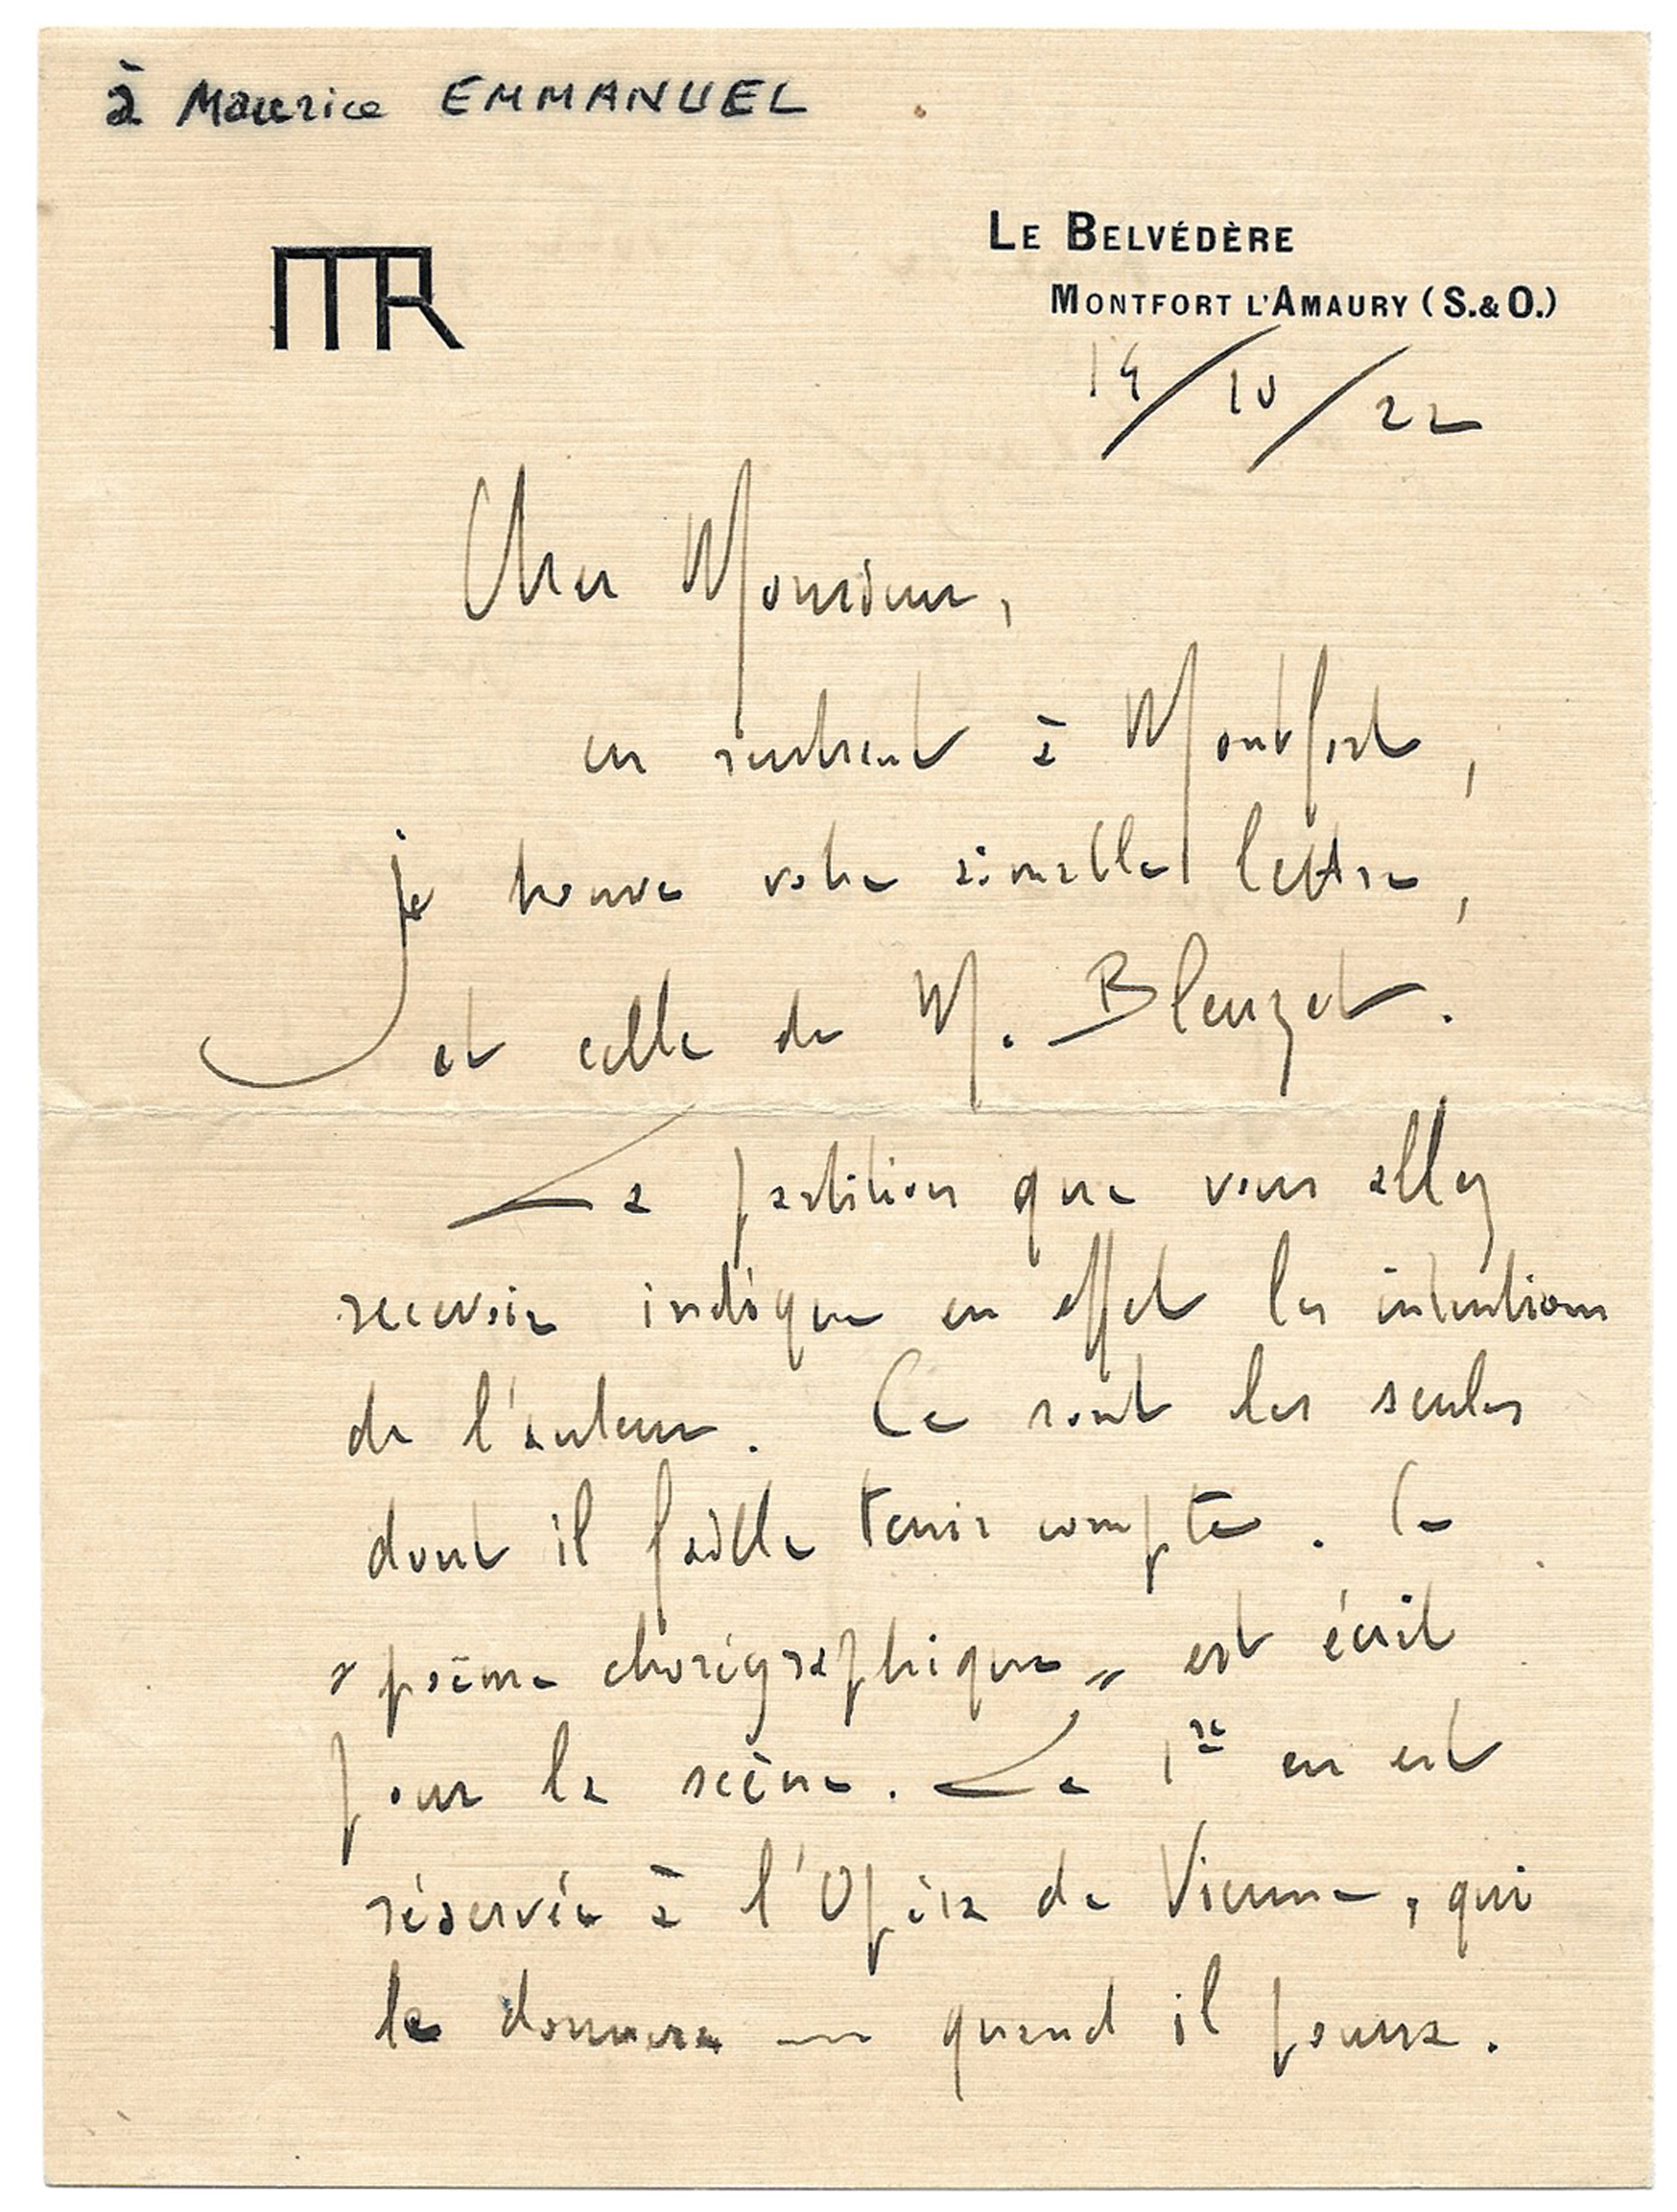 à Maurice EMMANUEL
MR
LE BELVÉDÈRE
MONTFORT L'AMAURY (S.&O.)
14/10/22
Cher Monsieur,
en rentrant à Montfort,
je trouve votre aimable lettre,
et celle de M. Bleuzet.
La partition que vous allez
recevoir indique en effet les intentions
de l'auteur. Ce sont les seules
dont il faille tenir compte. Ce
"poème chorégraphique" est écrit
pour la scène. La 1re en est
réservée à l'Opéra de Vienne, qui
le donnera — quand il pourra.